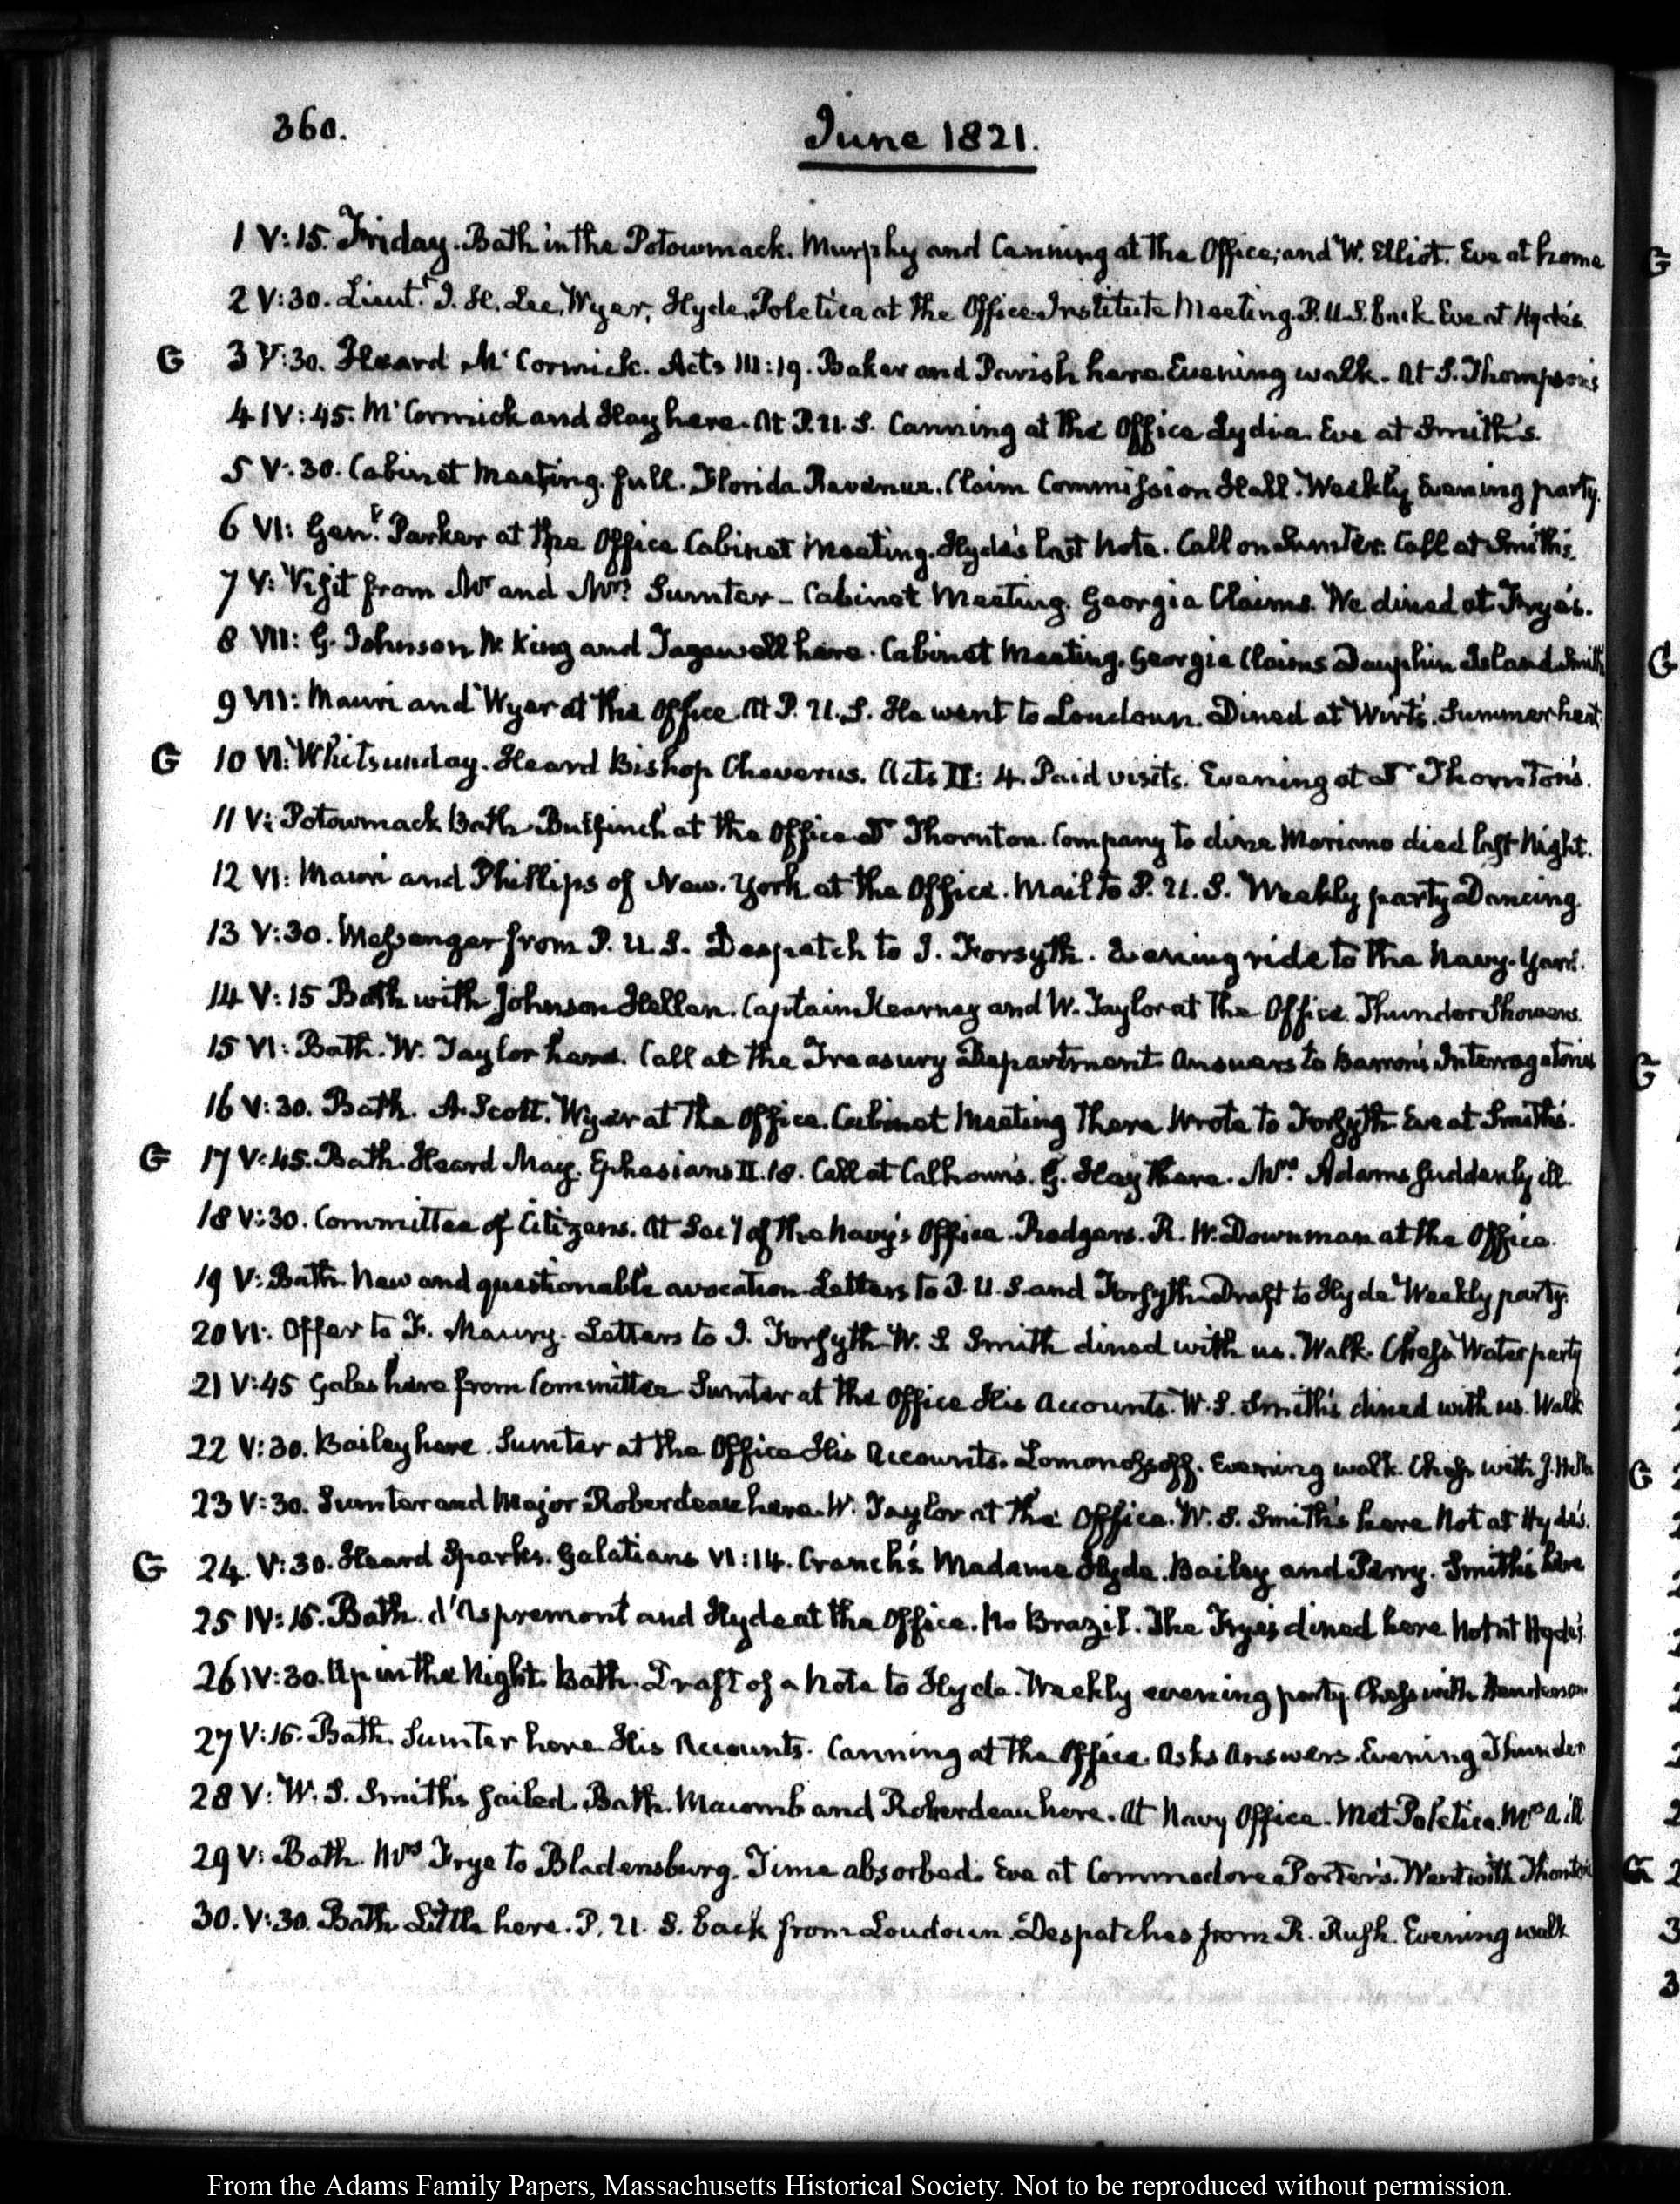 360.
June 1821.
1 V:15. Friday. Bath in the Potowmack. Murphy and Canning at the Office; and W. Elliot. Eve at home
2 V:30. Lieut.t J. H. Lee, Wyer, Hyde, Poletica at the Office Institute Meeting. P. U. S. back Eve at Hyde's
G 3 V:30. Heard McCormick. Acts III:19. Baker and Parish here Evening walk. At S. Thompson's
4 IV:45. McCormick and Hay here. At P. U. S. Canning at the Office Lydia. Eve at Smith's.
5 V:30. Cabinet Meeting. full. Florida Revenue. Claim Commission Hall. Weekly Evening party.
6 VI: Gen.l Parker at the Office Cabinet Meeting. Hyde's last Note. Call on Sumter. Call at Smith's.
7 V: Visit from Mr and Mrs Sumter - Cabinet Meeting. Georgia Claims. We dined at Frye's.
8 VII: G. Johnson W. King and Tazewell here. Cabinet Meeting. Georgia Claims Dauphin Island Smith
9 VII: Mauri and Wyer at the Office. At P. U. S. He went to Loudoun. Dined at Wirt's. Summer heat
G 10 VI: Whitsunday. Heard Bishop Cheverus. Acts II: 4. Paid visits. Evening at Dr Thornton's.
11 V: Potowmack Bath Bulfinch at the Office Dr Thornton. Company to dine Mariano died last Night.
12 VI: Mauri and Phillips of New-York at the Office. Mail to P. U. S. Weekly party Dancing.
13 V:30. Messenger from P. U. S. Despatch to J. Forsyth. Evening ride to the Navy-Yard.
14 V:15 Bath with Johnson Hellen. Captain Kearney and W. Taylor at the Office. Thunder Showers.
15 VI: Bath. W. Taylor here. Call at the Treasury Department Answers to Barron's Interrogatories
16 V:30. Bath. A. Scott. Wyer at the Office. Cabinet Meeting There Wrote to Forsyth Eve at Smith's.
G 17 V:45. Bath. Heard May. Ephesians II.18. Call at Calhoun's. G. Hay there. Mrs Adams suddenly ill
18 V:30. Committee of Citizens. At Secy of the Navy's Office. Rodgers. R. W. Downman at the Office.
19 V: Bath. New and questionable avocation Letters to P. U. S. and Forsyth Draft to Hyde Weekly party.
20 VI: Offer to F. Maury. Letters to J. Forsyth W. S. Smith dined with us. Walk. Chess. Water party
21 V:45 Gales here from Committee Sumter at the Office His Accounts. W. S. Smith's dined with us. Walk
22 V:30. Bailey here. Sumter at the Office His Accounts. Lomonossoff. Evening walk. Chess with J. Hellen
23 V:30. Sumter and Major Roberdeau here. W. Taylor at the Office. W. S. Smith's here Not at Hyde's.
G 24. V:30. Heard Sparks. Galatians VI:14. Cranch's Madame Hyde. Bailey and Perry. Smith's here
25 IV:15. Bath. d'Aspremont and Hyde at the Office. No Brazil. The Frye's dined here Not at Hyde's
26 IV:30. Up in the Night. Bath. Draft of a Note to Hyde. Weekly evening party. Chess with Henderson
27 V:15. Bath. Sumter here His Accounts. Canning at the Office. Asks Answers. Evening Thunder
28 V: W. S. Smith's sailed. Bath. Macomb and Roberdeau here. At Navy Office. Met Poletica. Mrs A ill
29 V: Bath. Mrs Frye to Bladensburg. Time absorbed. Eve at Commodore Porter's. Went with Thornton
30. V:30. Bath Little here. P. U. S. back from Loudoun. Despatches from R. Rush. Evening walk
From the Adams Family Papers, Massachusetts Historical Society. Not to be reproduced without permission.